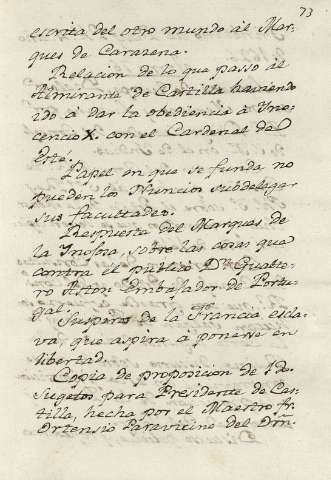 73
escrita del otro mundo al Mar-
ques de Carazena.
Relacion de lo que passo al
Almirante de Castilla haviendo
ido à dar la obediencia à Yno-
cencio X. con el Cardenal de
Este.
Papel en que se funda no
pueden los Nuncios subdelegar
sus facultades.
Respuesta del Marques de
la Ynojosa, sobre las cosas que
contra el publicó Dn. Gualte-
ro Aston Embaxador de
Suspiros de la Francia escla-
va, que aspira à ponerse en
libertad.
Copia de proposicion de
Sugetos para Presidente de Cas-
tilla, hecha por el Maestro fr.
Ortensio Paravicino del